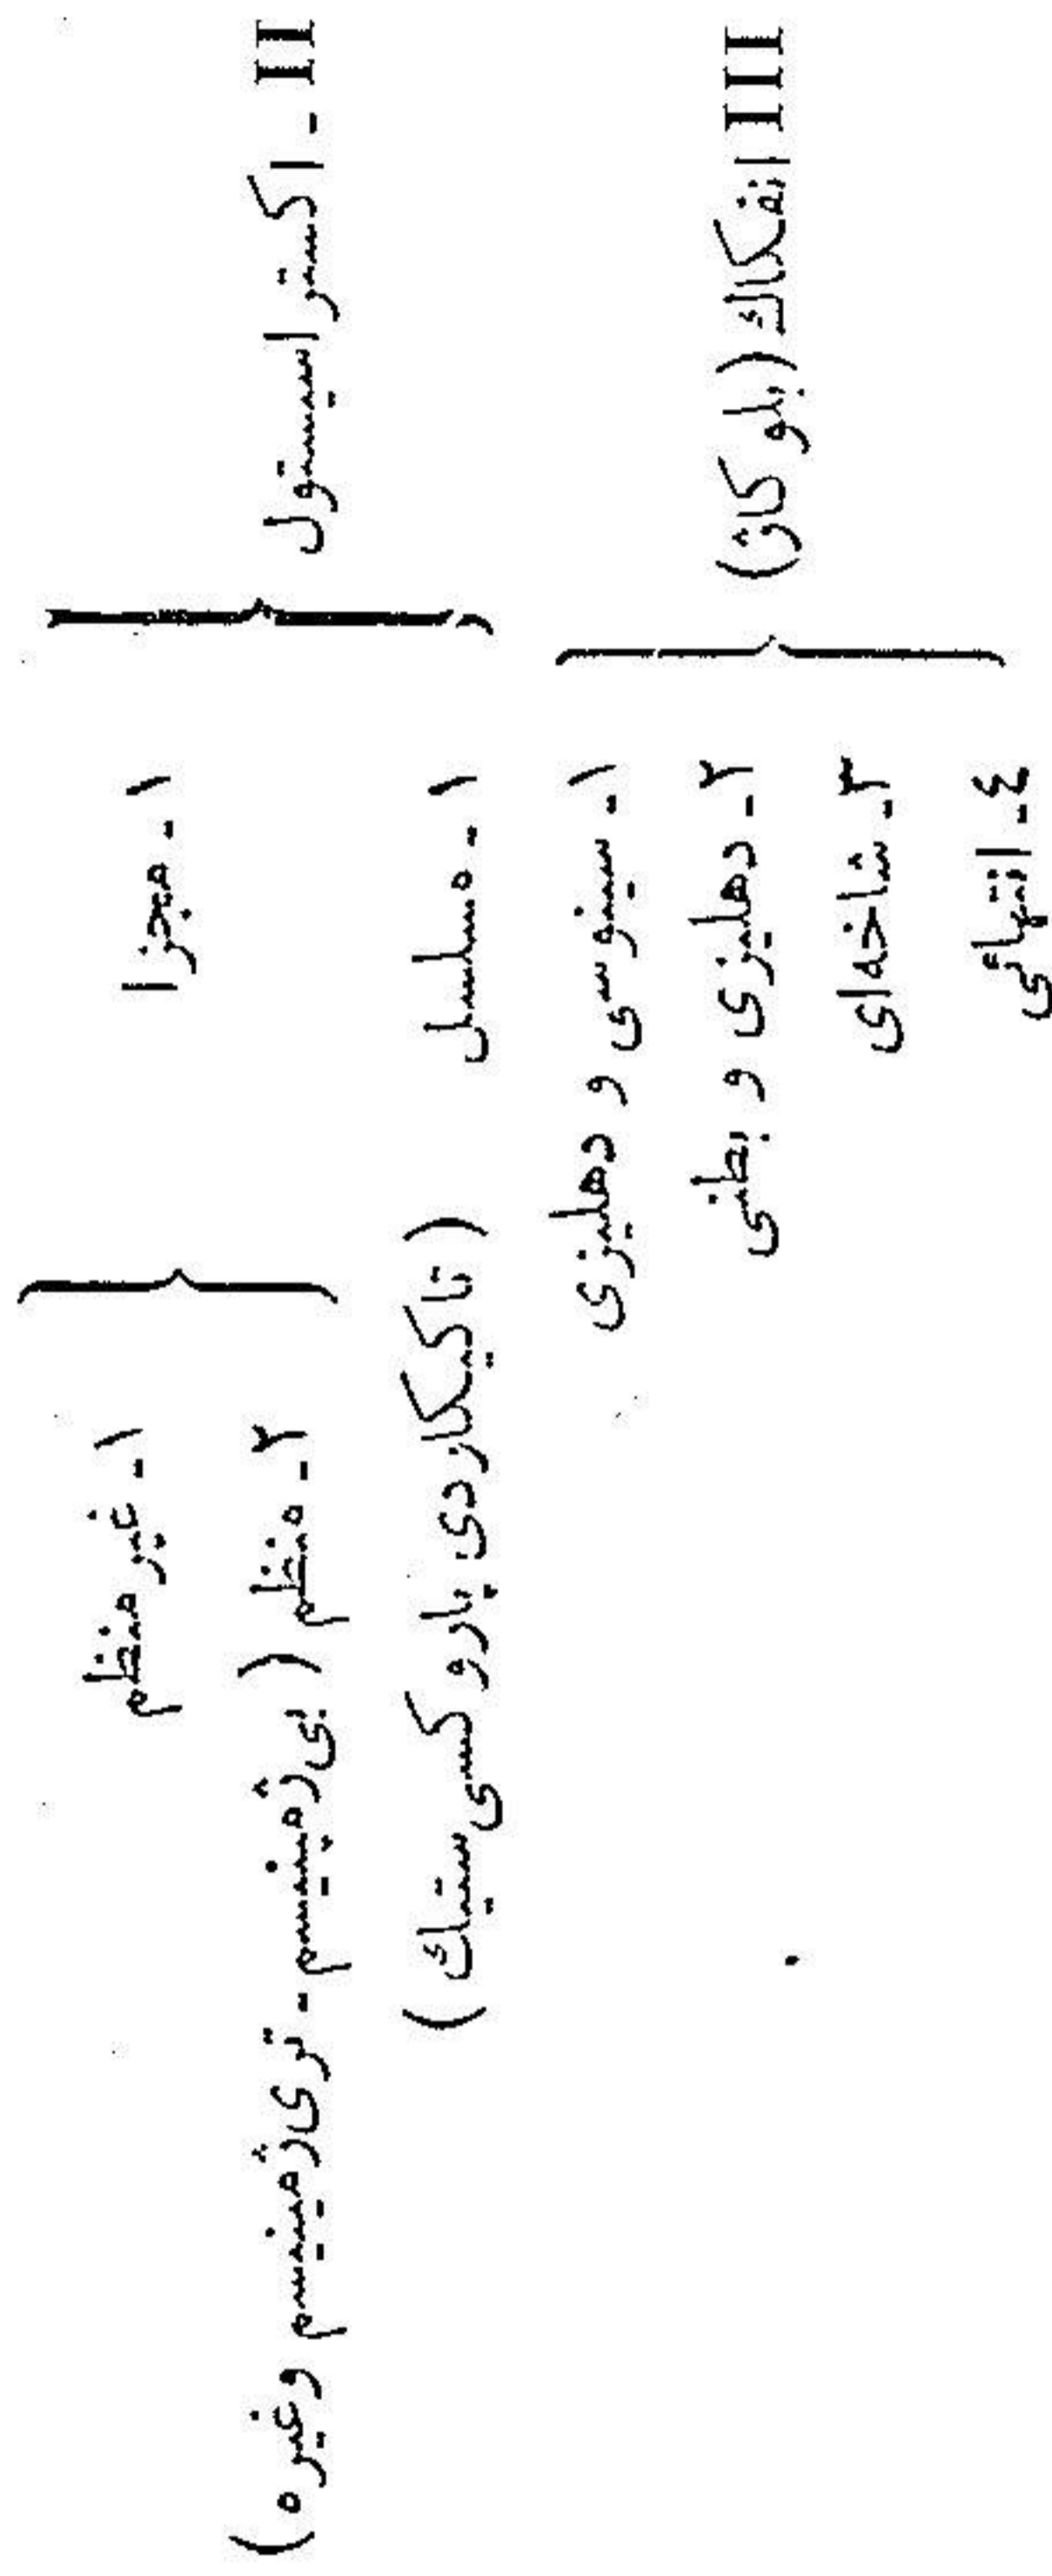 II - اکستراسیستول
۱ - مجزا
۱ - غیر منظم
۲ - منظم (بی‌ژمینیسم - تری‌ژمینیسم وغیره)
۱ - مسلسل (تاکیکاردی پاروکسی‌ستیک)
III انفکاک (بلوکاژ)
۱ - سینوسی و دهلیزی
۲ - دهلیزی و بطنی
۳ - شاخه‌ای
٤ - انتهائی